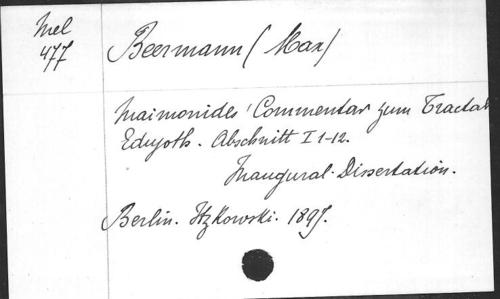 Mel
477
Beermann (Max)
Maimonides' Commentar zum Tractat
Edujoth. Abschnitt I 1-12.
Inaugural-Dissertation.
Berlin. Itzkowski. 1897.